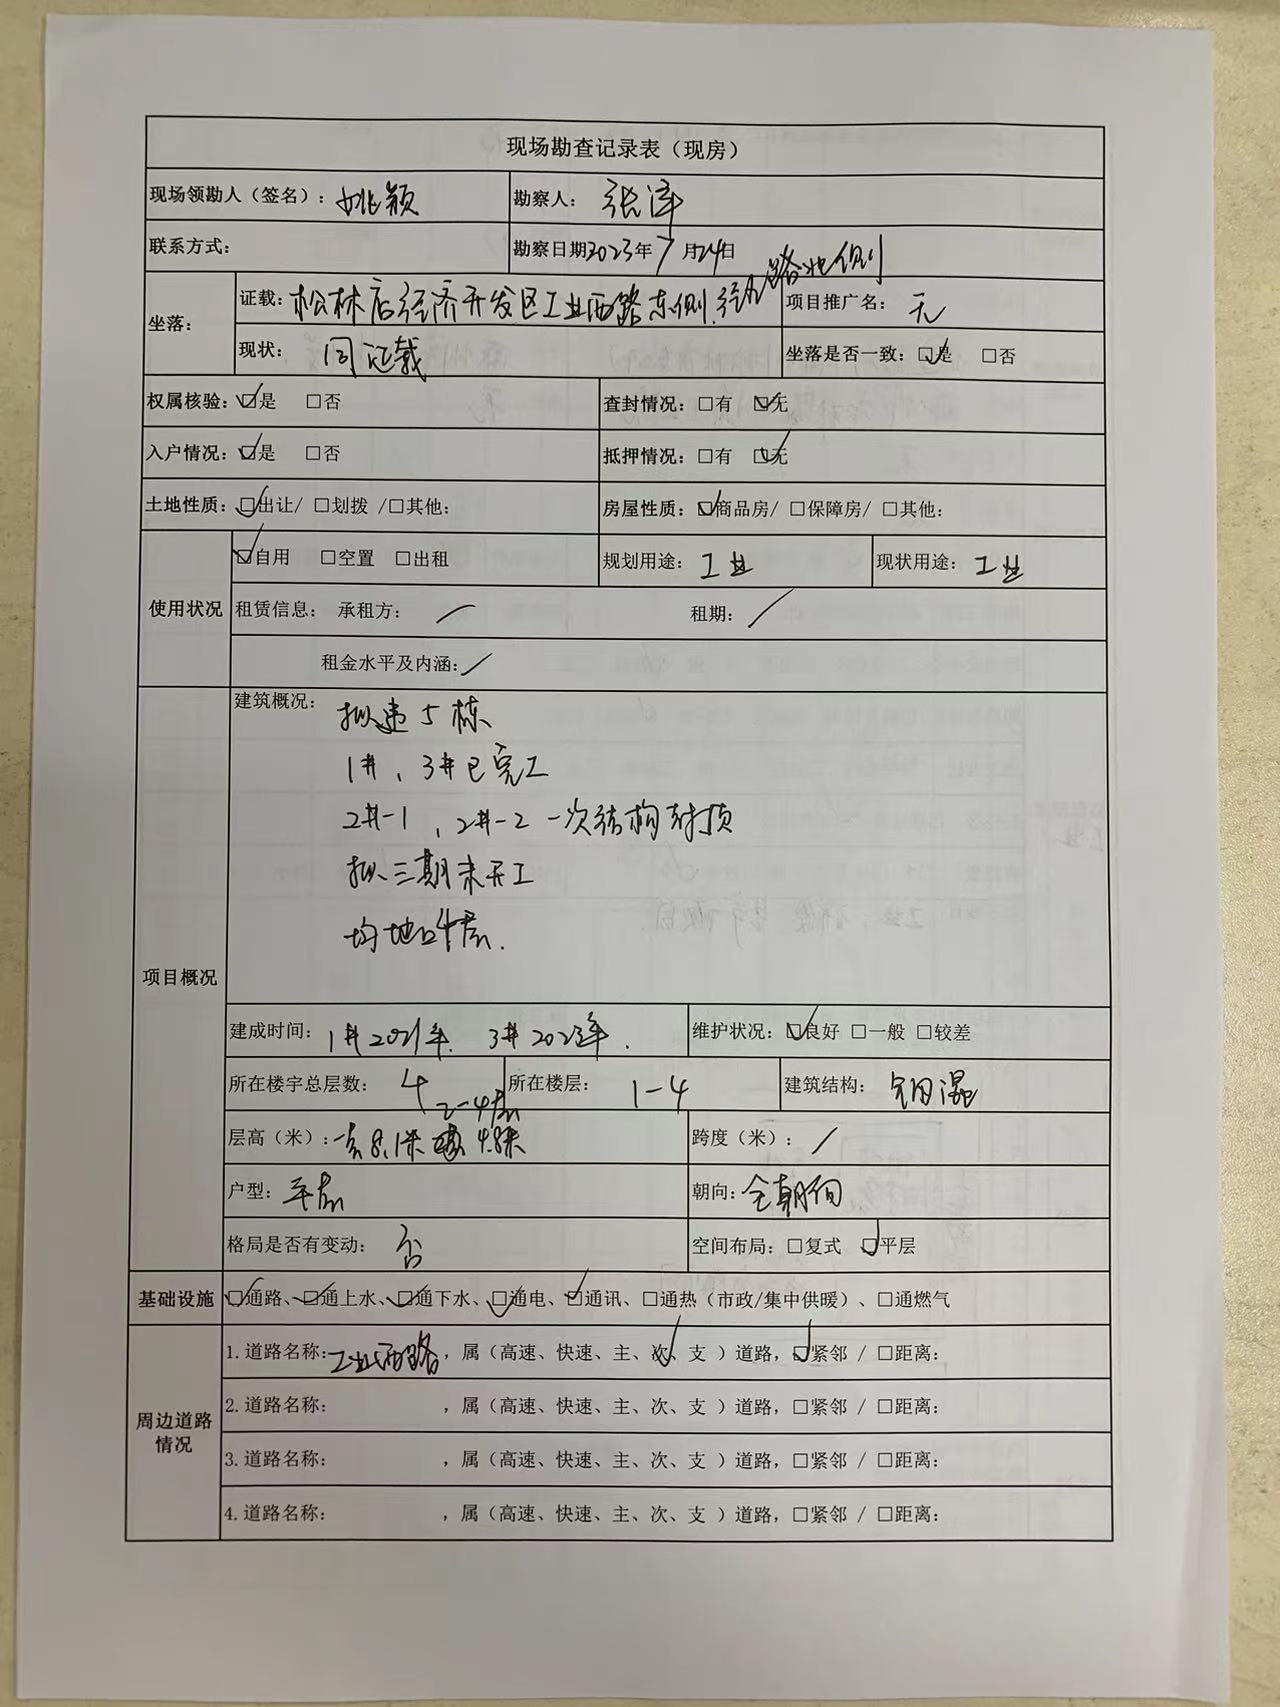 现场勘查记录表（现房）
现场领勘人（签名）：姚颖 勘察人：张泽
联系方式： 勘察日期2023年7月24日
坐落： 证载：松林店经济开发区工业西路东侧、经九路北侧 项目推广名：无
现状：同证载 坐落是否一致：☑是 □否
权属核验：☑是 □否 查封情况：□有 ☑无
入户情况：☑是 □否 抵押情况：□有 ☑无
土地性质：☑出让/ □划拨 /□其他： 房屋性质：☑商品房/ □保障房/ □其他：
使用状况 ☑自用 □空置 □出租 规划用途：工业 现状用途：工业
租赁信息： 承租方：/ 租期：/
租金水平及内涵：/
项目概况 建筑概况：拟建5栋
1#、3#已完工
2#-1，2#-2一次结构封顶
拟三期未开工
均地上4层.
建成时间：1#2021年. 3#2023年. 维护状况：☑良好 □一般 □较差
所在楼宇总层数：4 所在楼层：1-4 建筑结构：钢混
层高（米）：一层8.1米 2-4层4.8米 跨度（米）：/
户型：平层 朝向：全朝向
格局是否有变动：否 空间布局：□复式 ☑平层
基础设施 ☑通路、☑通上水、☑通下水、☑通电、☑通讯、□通热（市政/集中供暖）、□通燃气
周边道路情况 1.道路名称：工业西路，属（高速、快速、主、次✓、支 ）道路，☑紧邻 / □距离：
2.道路名称： ，属（高速、快速、主、次、支 ）道路，□紧邻 / □距离：
3.道路名称： ，属（高速、快速、主、次、支 ）道路，□紧邻 / □距离：
4.道路名称： ，属（高速、快速、主、次、支 ）道路，□紧邻 / □距离：